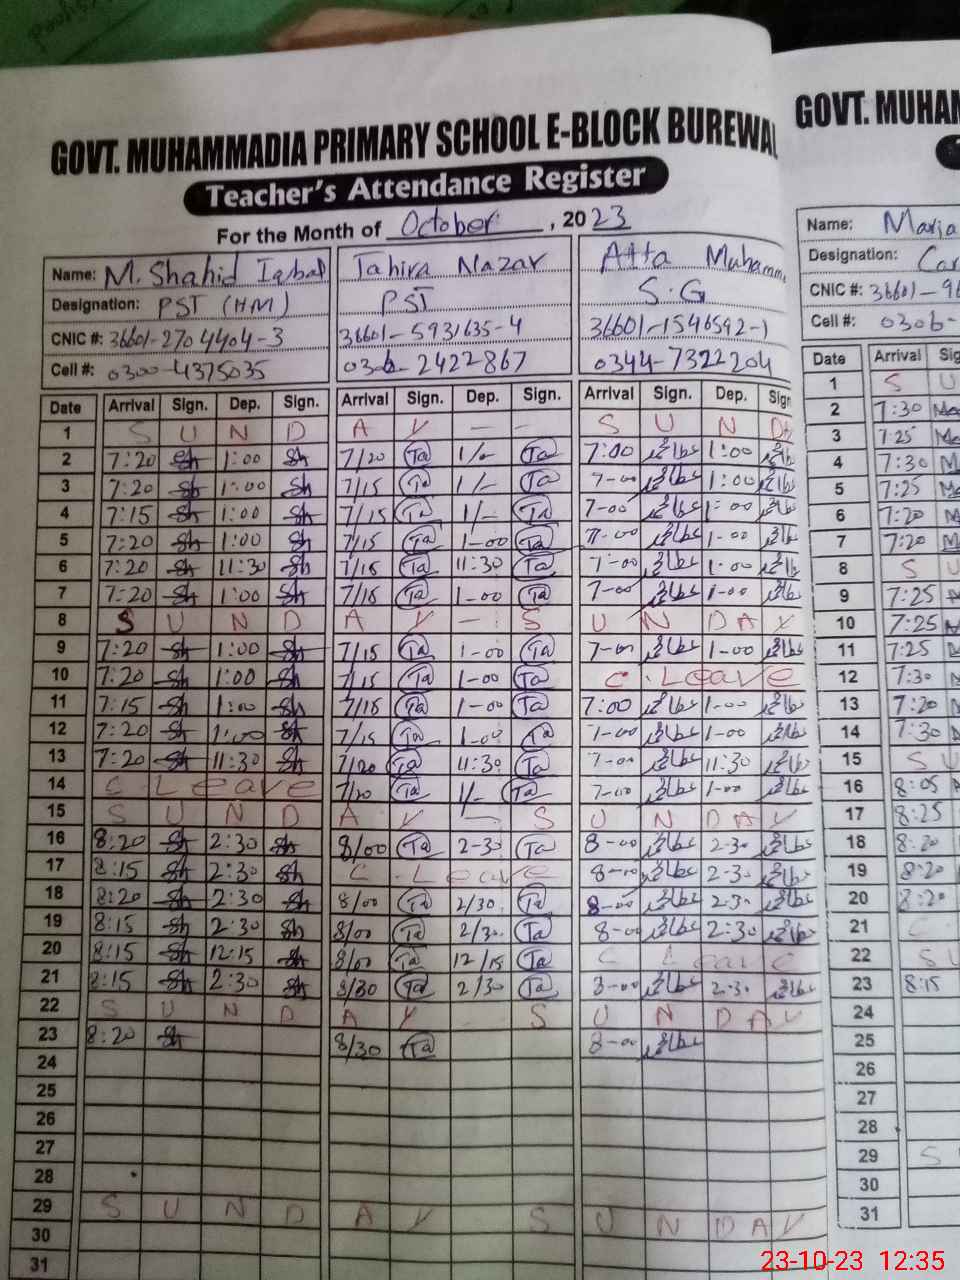 GOVT. MUHAMMADIA PRIMARY SCHOOL E-BLOCK BUREWA
Teacher's Attendance Register
For the Month of October, 2023
Name: M. Shahid Iqbal Tahira Nazar Atta Muhamm
Designation: PST (HM) PST S.G
CNIC #: 36601-2704404-3 36601-5931635-4 36601-1546592-1
Cell #: 0300-4375035 0306-2422867 0344-7322204
Date Arrival Sign. Dep. Sign. Arrival Sign. Dep. Sign. Arrival Sign. Dep. Sign
1 S U N D A Y - - S U N DA
2 7:20 Sh 1:00 Sh 7/20 Ta 1/- Ta 7:00 1:00
3 7:20 Sh 1:00 Sh 7/15 Ta 1/- Ta 7-00 1:00
4 7:15 Sh 1:00 Sh 7/15 Ta 1/- Ta 7-00 1:00
5 7:20 Sh 1:00 Sh 7/15 Ta 1-00 Ta 7-00 1-00
6 7:20 Sh 11:30 Sh 7/15 Ta 11:30 Ta 7-00 1-00
7 7:20 Sh 1:00 Sh 7/15 Ta 1-00 Ta 7-00 1-00
8 S U N D A Y - S U N D A Y
9 7:20 Sh 1:00 Sh 7/15 Ta 1-00 Ta 7-00 1-00
10 7:20 Sh 1:00 Sh 7/15 Ta 1-00 Ta C. Leave
11 7:15 Sh 1:00 Sh 7/15 Ta 1-00 Ta 7:00 1-00
12 7:20 Sh 1:00 Sh 7/15 Ta 1-00 Ta 7-00 1-00
13 7:20 Sh 11:30 Sh 7/20 Ta 11:30 Ta 7-00 11:30
14 C. Leave 7/20 Ta 1/- Ta 7-00 1-00
15 S U N D A Y - S U N D A Y
16 8:20 Sh 2:30 Sh 8/00 Ta 2-30 Ta 8-00 2-30
17 8:15 Sh 2:30 Sh C. Leave 8-00 2-30
18 8:20 Sh 2:30 Sh 8/00 Ta 2/30 Ta 8-00 2-30
19 8:15 Sh 2:30 Sh 8/00 Ta 2/30 Ta 8-00 2:30
20 8:15 Sh 12:15 Sh 8/00 Ta 12/15 Ta C Leave
21 8:15 Sh 2:30 Sh 8/30 Ta 2/30 Ta 8-00 2-30
22 S U N D A Y S U N D A Y
23 8:20 Sh 8/30 Ta 8-00
24
25
26
27
28
29 S U N D A Y S U N D A Y
30
31
GOVT. MUHAM
Name: Maria
Designation: Car
CNIC #: 36601-96
Cell #: 0306-
Date Arrival Sig
1 S U
2 7:30
3 7:25
4 7:30
5 7:25
6 7:20
7 7:20
8 S U
9 7:25
10 7:25
11 7:25
12 7:30
13 7:20
14 7:30
15 S U
16 8:05
17 8:25
18 8:20
19 8:20
20 8:20
21 C
22 S U
23 8:15
24
25
26
27
28
29 S
30
31
23-10-23 12:35